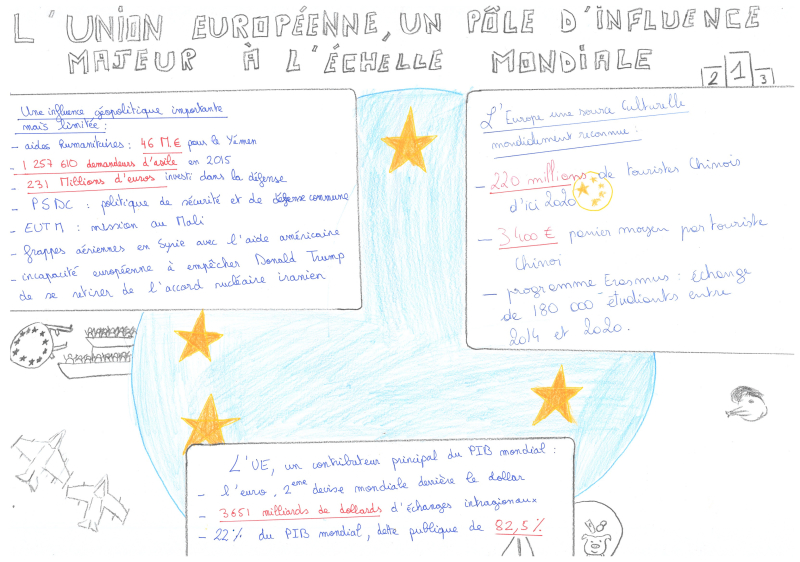 L'UNION EUROPÉENNE, UN PÔLE D'INFLUENCE
MAJEUR À L'ÉCHELLE MONDIALE
2 1 3
Une influence géopolitique importante
mais limitée :
- aides humanitaires : 46 M € pour le Yémen
- 1 257 610 demandeurs d'asile en 2015
- 231 Millions d'euros investi dans la défense
- PSDC : politique de sécurité et de défense commune
- EUTM : mission au Mali
- frappes aériennes en Syrie avec l'aide américaine
- incapacité européenne à empêcher Donald Trump
de se retirer de l'accord nucléaire iranien
L'Europe une source culturelle
mondialement reconnue :
- 220 millions de touristes Chinois
d'ici 2020
- 3400 € panier moyen par touriste
Chinoi
- programme Erasmus : échange
de 180 000 étudiants entre
2014 et 2020.
L'UE, un contributeur principal du PIB mondial :
- l'euro, 2eme devise mondiale derrière le dollar
- 3651 milliards de dollards d'échanges intragionaux
- 22% du PIB mondial, dette publique de 82,5%